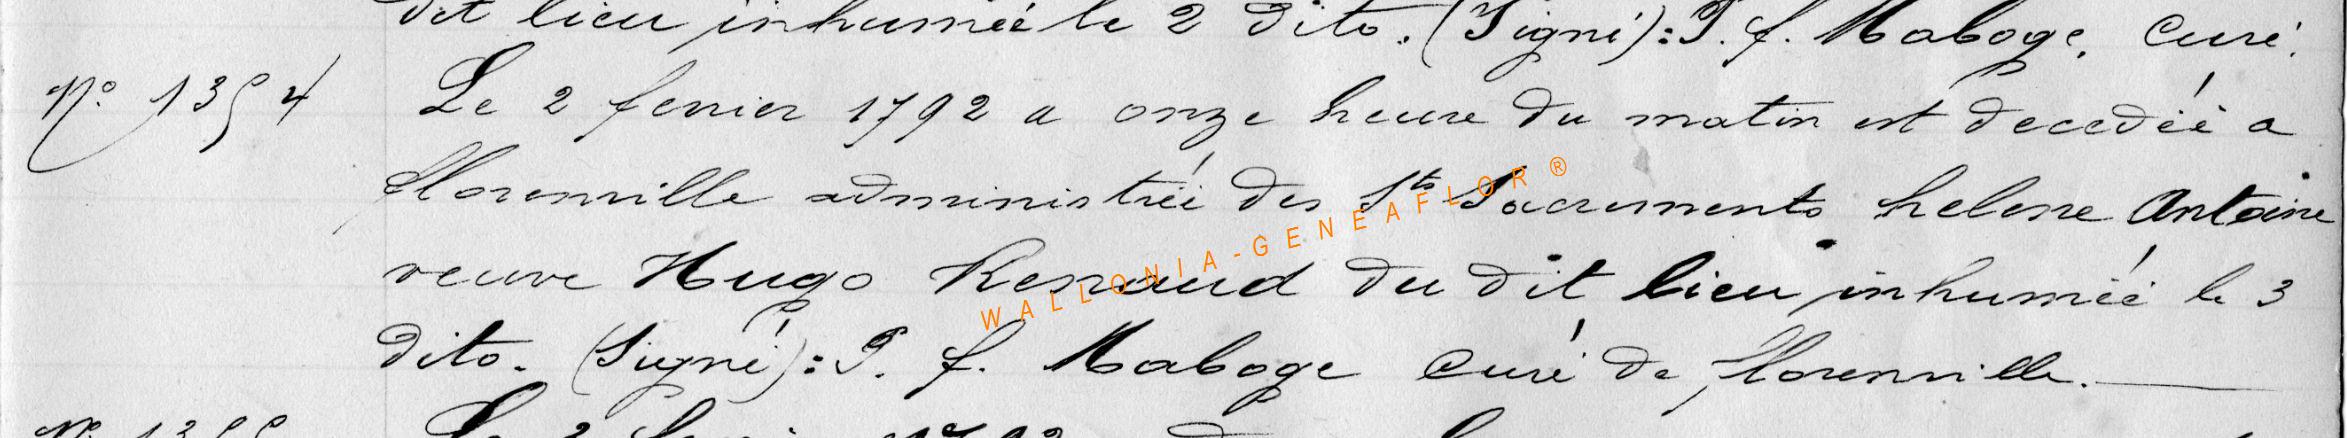 dit lieu inhumée le 2 dito. (Signé): P. f. Maboge, Curé.
N° 1354 Le 2 fevrier 1792 a onze heure du matin est decedéé a
florenville administréé des Sts Sacrements helene Antoine
veuve Hugo Renaud du dit lieu inhuméé le 3
dito. (Signé): P. f. Maboge Curé de florenville.
N° 1355 Le 2
WALLONIA-GENEAFLOR ®